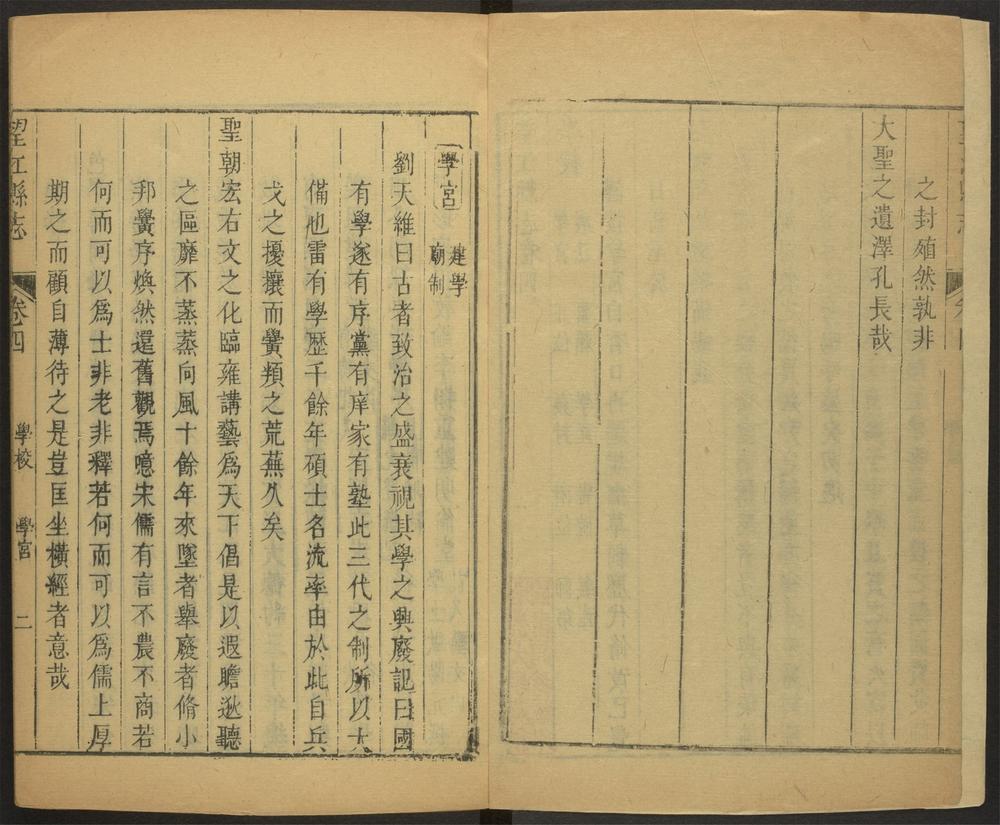 之封殖然孰非
大聖之遺澤孔長哉
學宮 建學 廟制
劉天維曰古者致治之盛衰視其學之興廢記曰國
有學遂有序黨有庠家有塾此三代之制所以大
備也雷有學歷千餘年碩士名流率由於此自兵
戈之擾攘而黌類之荒蕪久矣
聖朝宏右文之化臨雍講藝爲天下倡是以遐瞻逖聽
之區靡不蒸蒸向風十餘年來墜者舉廢者脩小
邦黌序煥然還舊觀焉噫宋儒有言不農不商若
何而可以爲士非老非釋若何而可以爲儒上厚
期之而顧自薄待之是豈匡坐橫經者意哉
望江縣志 卷四 學校 學宮 二